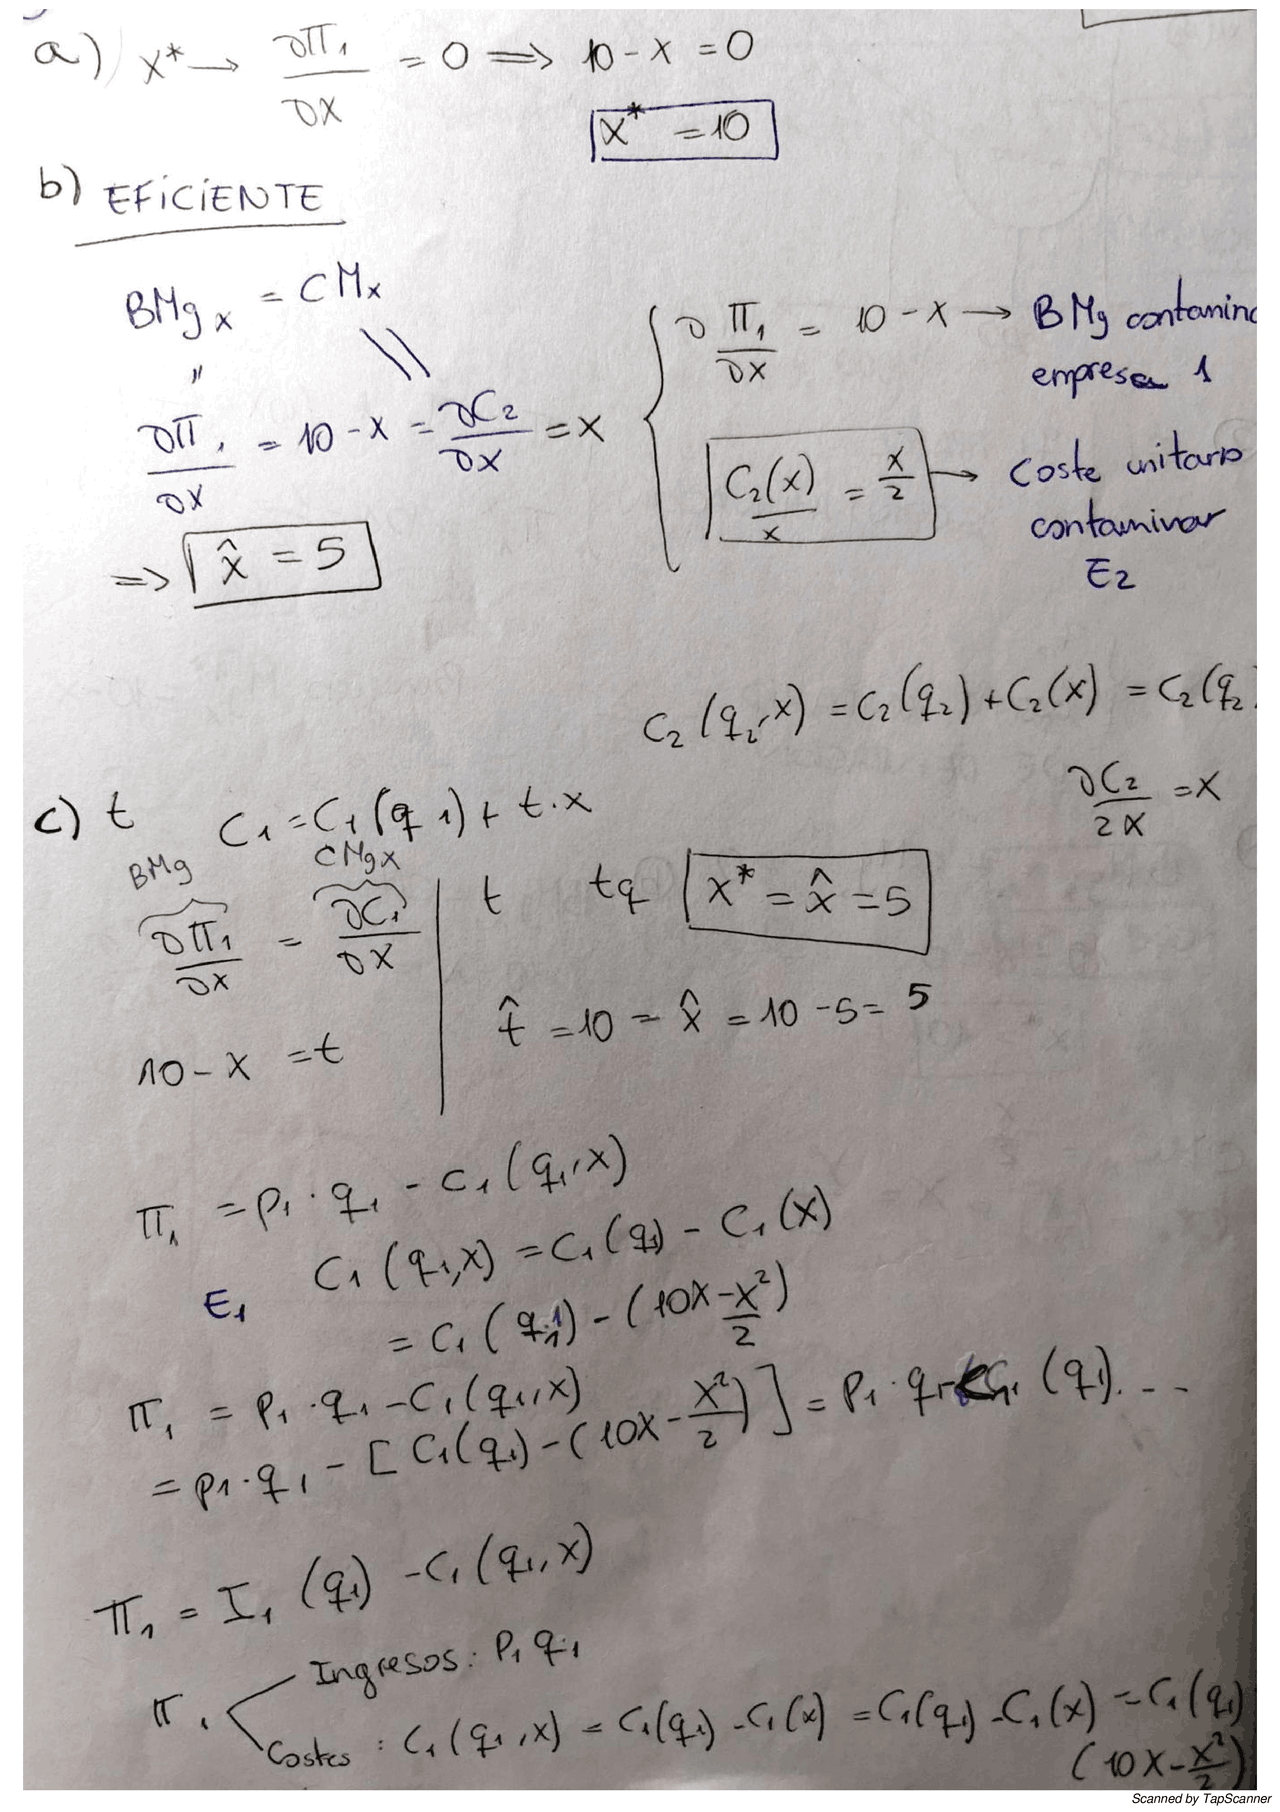 a) x* → ∂Π₁/∂x = 0 ⟹ 10 - x = 0
x* = 10
b) EFICIENTE
BMg x = CMx
∂Π₁/∂x = 10 - x = ∂C₂/∂x = x
⟹ x̂ = 5
∂Π₁/∂x = 10 - x → BMg contamina
empresa 1
C₂(x)/x = x/2 → Coste unitario
contaminar
E2
C₂(q₂,x) = C₂(q₂) + C₂(x) = C₂(q₂
∂C₂/2x = x
c) t C₁ = C₁(q1) + t·x
BMg CMgx
∂Π₁/∂x = ∂C₁/∂x
10 - x = t
t tq x* = x̂ = 5
t̂ = 10 - x̂ = 10 - 5 = 5
Π₁ = P₁·q₁ - C₁(q₁,x)
E1 C₁(q₁,x) = C₁(q₁) - C₁(x)
= C₁(q₁) - (10x - x²/2)
Π₁ = P₁·q₁ - C₁(q₁,x)
= P₁·q₁ - [C₁(q₁) - (10x - x²/2)] = P₁·q₁ - C₁(q₁)...
Π₁ = I₁(q₁) - C₁(q₁,x)
Π₁ Ingresos: P₁q₁
Costes: C₁(q₁,x) = C₁(q₁) - C₁(x) = C₁(q₁) - C₁(x) = C₁(q₁)
(10x - x²/2)
Scanned by TapScanner